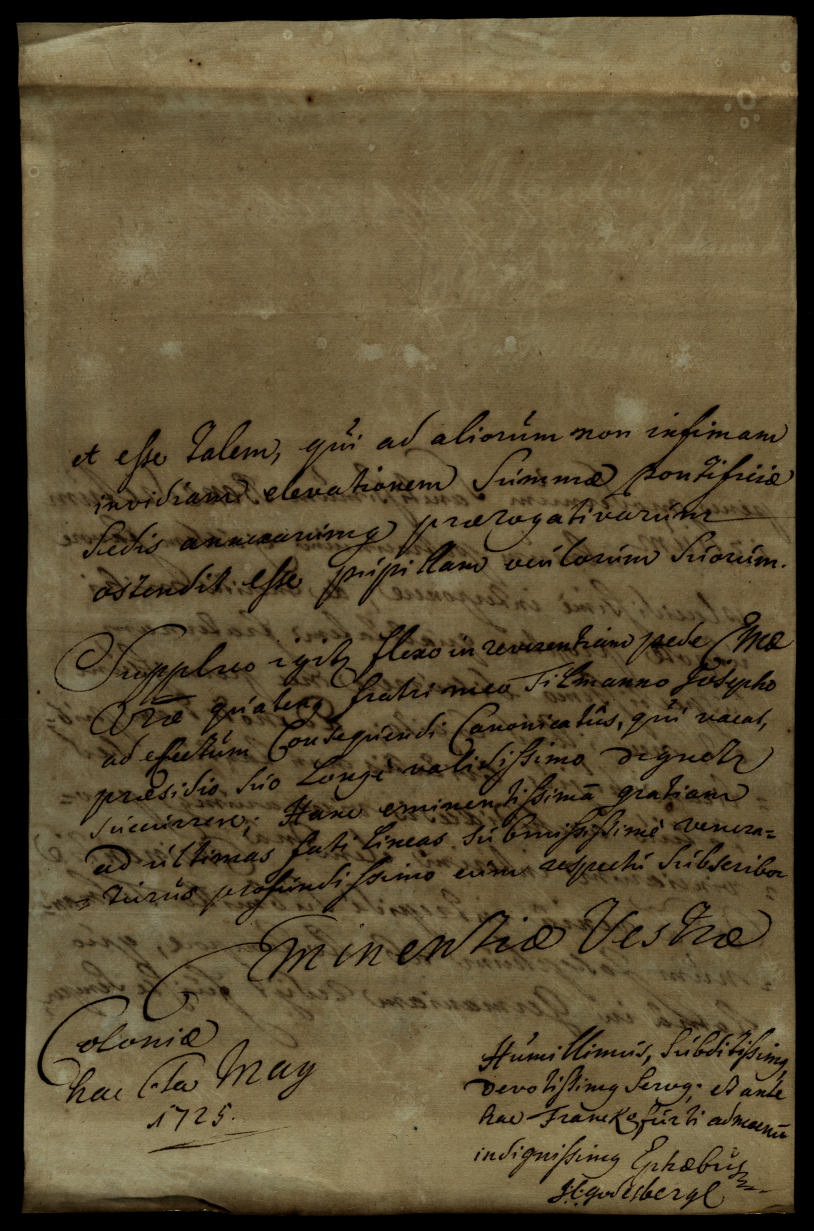 et esse talem, qui ad aliorum non infimam
invidiam elevationem Summæ pontificiæ
Sedis prærogativarum
ostendit esse pupillam oculorum suorum.
Supplico igitr flexo in reverentiam pede Emæ
Vræ quatens fratri meo Tilmanno Josepho
ad effectum Consequendi Canonicatûs, qui vacat,
præsidio suo longè validissimo dignetr
succurrere; Hanc eminentissimā gratiam
ad ultimas fati lineas submississimè venera=
=turus profundissimo cum respectu subscribor
Eminentiæ Vestræ
Coloniæ
hac May
1725.
Humillimus, subditissimg
Devotissimg Servg. et ante
hac Franckofurti ad moenū
indignissimg Ephæbus